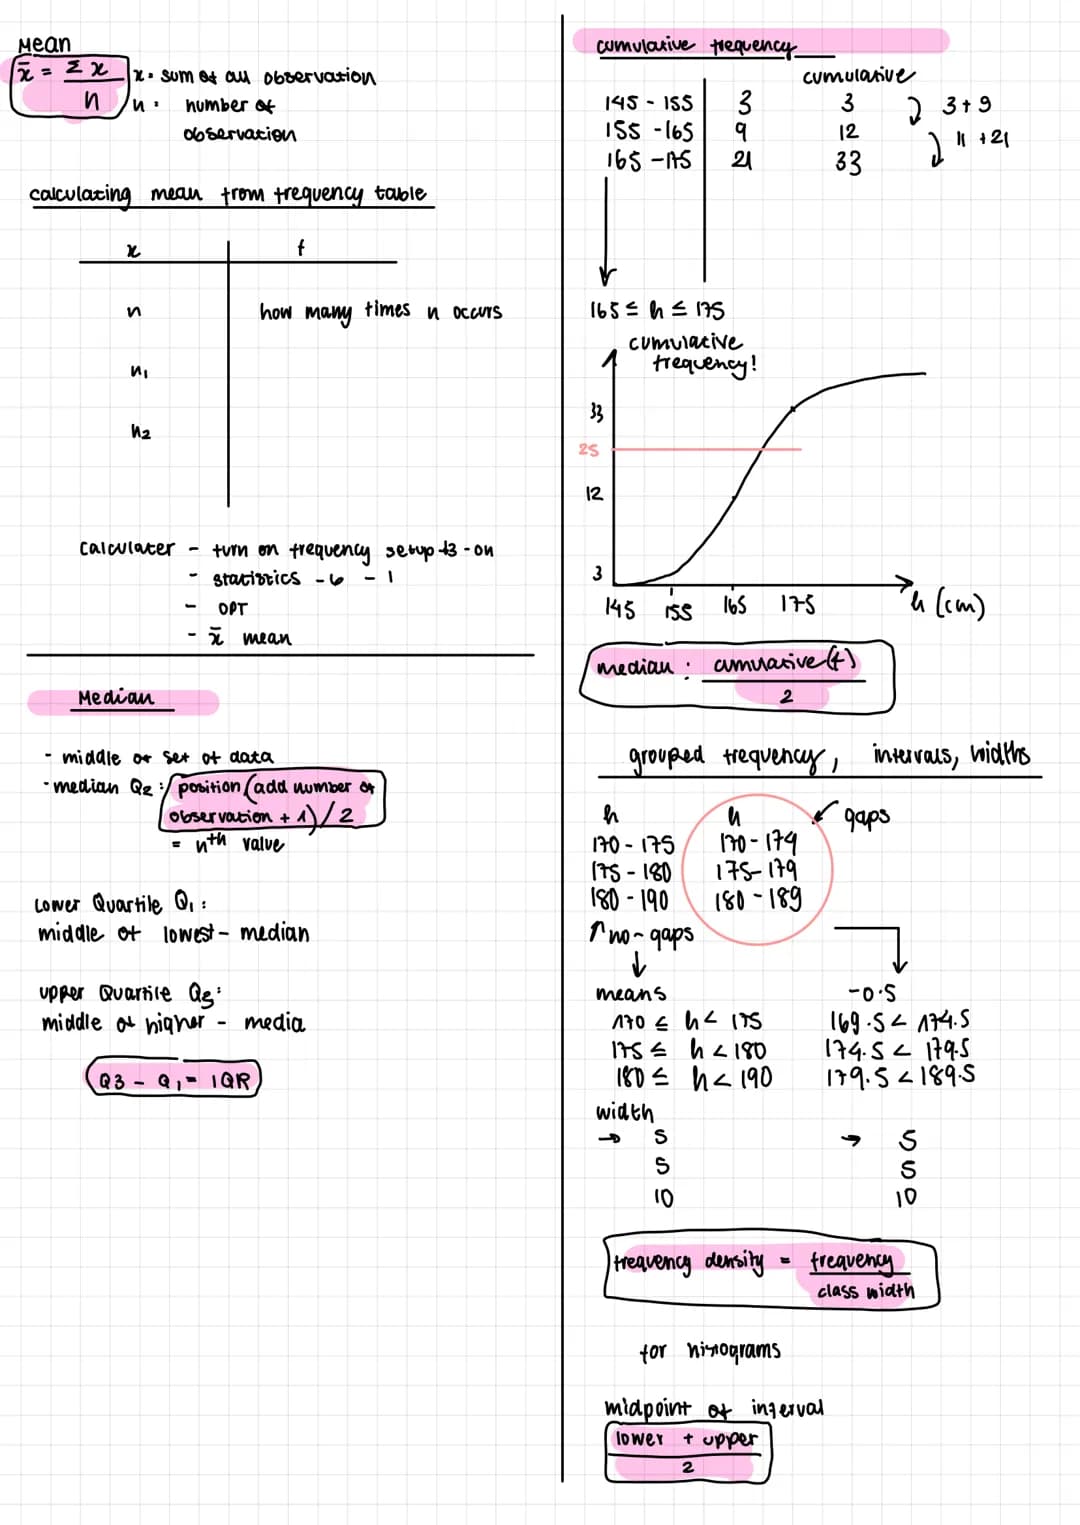 Mean
x̄ = Σx / n
x = sum of all observation
n = number of
observation
calculating mean from frequency table
x f
n how many times n occurs
n₁
n₂
calculater - turn on frequency setup ↓3 - on
- statistics - 6 - 1
- OPT
- x̄ mean
Median
- middle of set of data
- median Q2 : position (add number of
observation + 1) / 2
= nth value
Lower Quartile Q₁ :
middle of lowest - median
upper Quartile Q3 :
middle of higher - media
Q3 - Q₁ = IQR
cumulative frequency
cumulative
145 - 155 3 3 3+9
155 - 165 9 12 11 +21
165 - 175 21 33
165 ≤ h ≤ 175
cumulative
frequency!
33
25
12
3
145 155 165 175 h (cm)
median : cumulative (f) / 2
grouped frequency, intervals, widths
h h gaps
170 - 175 170 - 174
175 - 180 175 - 179
180 - 190 180 - 189
↑ no - gaps
↓
means -0.5
170 ≤ h < 175 169.5 < 174.5
175 ≤ h < 180 174.5 < 179.5
180 ≤ h < 190 179.5 < 189.5
width
→ 5 → 5
5 5
10 10
frequency density = frequency / class width
for histograms
midpoint of interval
lower + upper
2